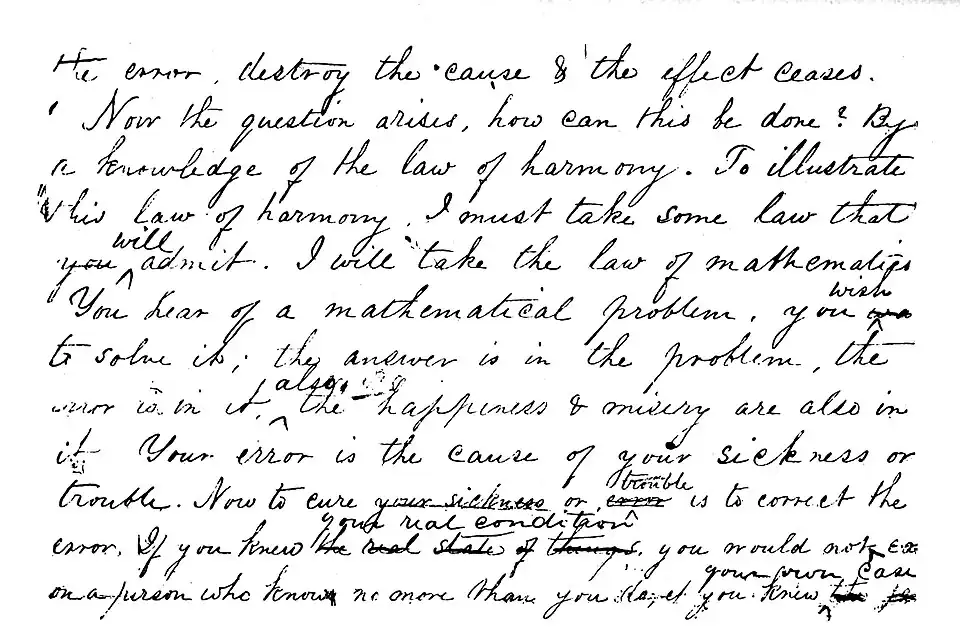 the error, destroy the cause & the effect ceases.
Now the question arises, how can this be done? By
a knowledge of the law of harmony. To illustrate
this law of harmony, I must take some law that
will
you admit. I will take the law of mathematics
You hear of a mathematical problem, you
wish
to solve it; the answer is in the problem, the
also,
error is in it, the happiness & misery are also in
it Your error is the cause of your sickness or
trouble
trouble. Now to cure your sickness or error is to correct the
your real condition
error. If you knew the real state of things, you would not ex
your own case
on a person who knows no more than you do, if you knew the